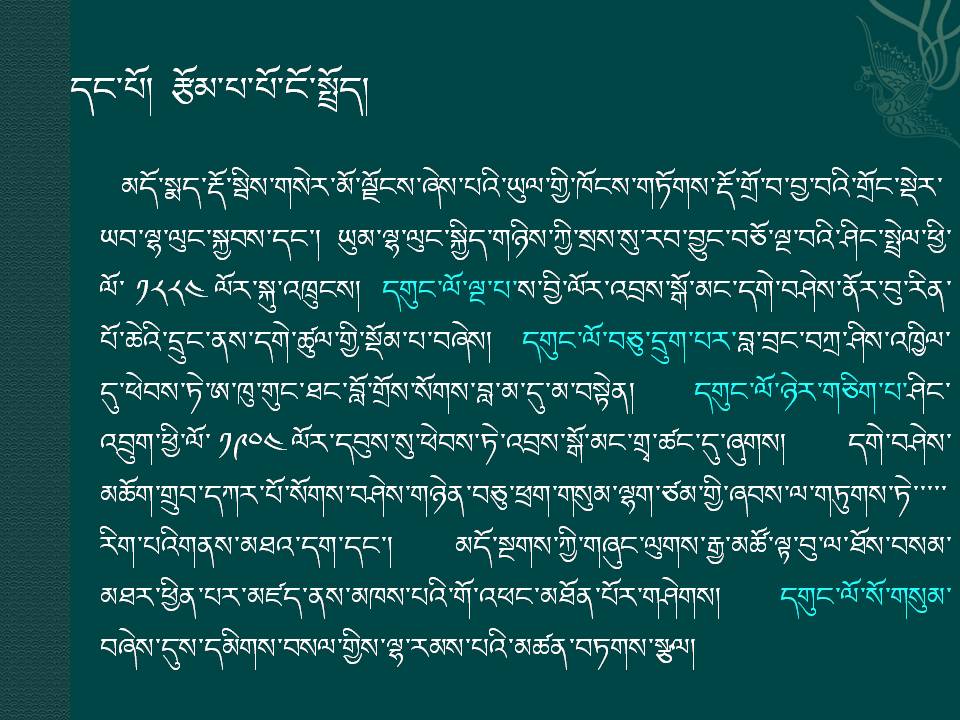 དང་པོ། རྩོམ་པ་པོ་ངོ་སྤྲོད།
མདོ་སྨད་རྡོ་སྦིས་གསེར་མོ་ལྗོངས་ཞེས་པའི་ཡུལ་གྱི་ཁོངས་གཏོགས་རྡོ་གྲོ་བ་བྱ་བའི་གྲོང་སྡེར་
ཡབ་ལྷ་ལུང་སྐྱབས་དང་། ཡུམ་ལྷ་ལུང་སྐྱིད་གཉིས་ཀྱི་སྲས་སུ་རབ་བྱུང་བཅོ་ལྔ་བའི་ཤིང་སྤྲེལ་ཕྱི་
ལོ་ ༡༨༨༤ ལོར་སྐུ་འཁྲུངས། དགུང་ལོ་ལྔ་པ་ས་བྱི་ལོར་འབྲས་སྒོ་མང་དགེ་བཤེས་ནོར་བུ་རིན་
པོ་ཆེའི་དྲུང་ནས་དགེ་ཚུལ་གྱི་སྡོམ་པ་བཞེས། དགུང་ལོ་བཅུ་དྲུག་པར་བླ་བྲང་བཀྲ་ཤིས་འཁྱིལ་
དུ་ཕེབས་ཏེ་ཨ་ཁུ་གུང་ཐང་བློ་གྲོས་སོགས་བླ་མ་དུ་མ་བསྟེན། དགུང་ལོ་ཉེར་གཅིག་པ་ཤིང་
འབྲུག་ཕྱི་ལོ་ ༡༩༠༤ ལོར་དབུས་སུ་ཕེབས་ཏེ་འབྲས་སྒོ་མང་གྲྭ་ཚང་དུ་ཞུགས། དགེ་བཤེས་
མཆོག་གྲུབ་དཀར་པོ་སོགས་བཤེས་གཉེན་བཅུ་ཕྲག་གསུམ་ལྷག་ཙམ་གྱི་ཞབས་ལ་གཏུགས་ཏེ་་་་་
རིག་པའིགནས་མཐའ་དག་དང་། མདོ་སྔགས་ཀྱི་གཞུང་ལུགས་རྒྱ་མཚོ་ལྟ་བུ་ལ་ཐོས་བསམ་
མཐར་ཕྱིན་པར་མཛད་ནས་མཁས་པའི་གོ་འཕང་མཐོན་པོར་གཤེགས། དགུང་ལོ་སོ་གསུམ་
བཞེས་དུས་དམིགས་བསལ་གྱིས་ལྷ་རམས་པའི་མཚན་བཏགས་སྩལ།